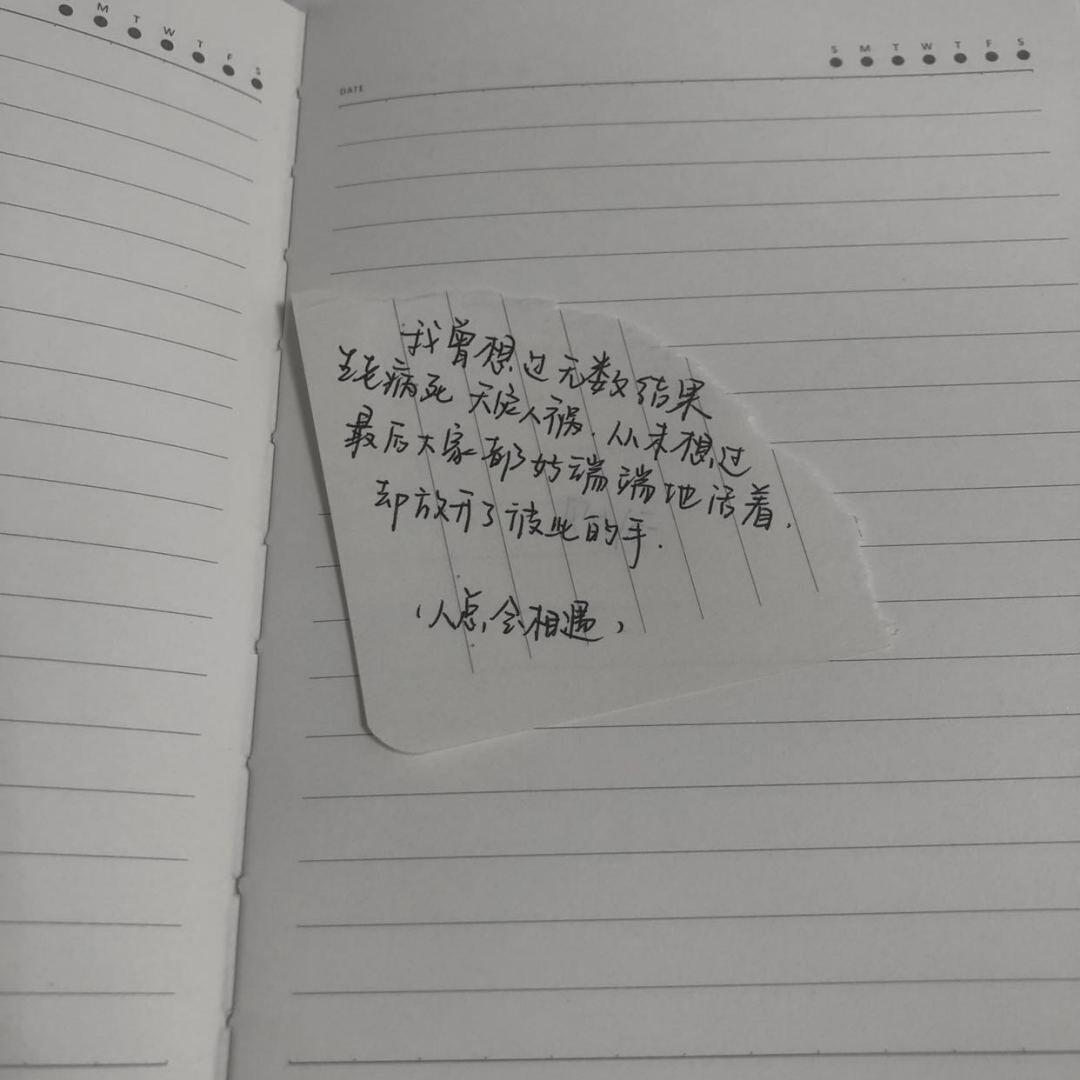 M T W T F S
S M T W T F S
DATE
我曾想过无数结果
生老病死 天定人祸.从未想过
最后大家都好端端地活着.
却放开了彼此的手.
(人总会相遇)